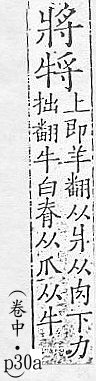 將㸹
上即羊翻从爿从肉下力
拙翻牛白脊从爪从牛
(卷中・
p30a